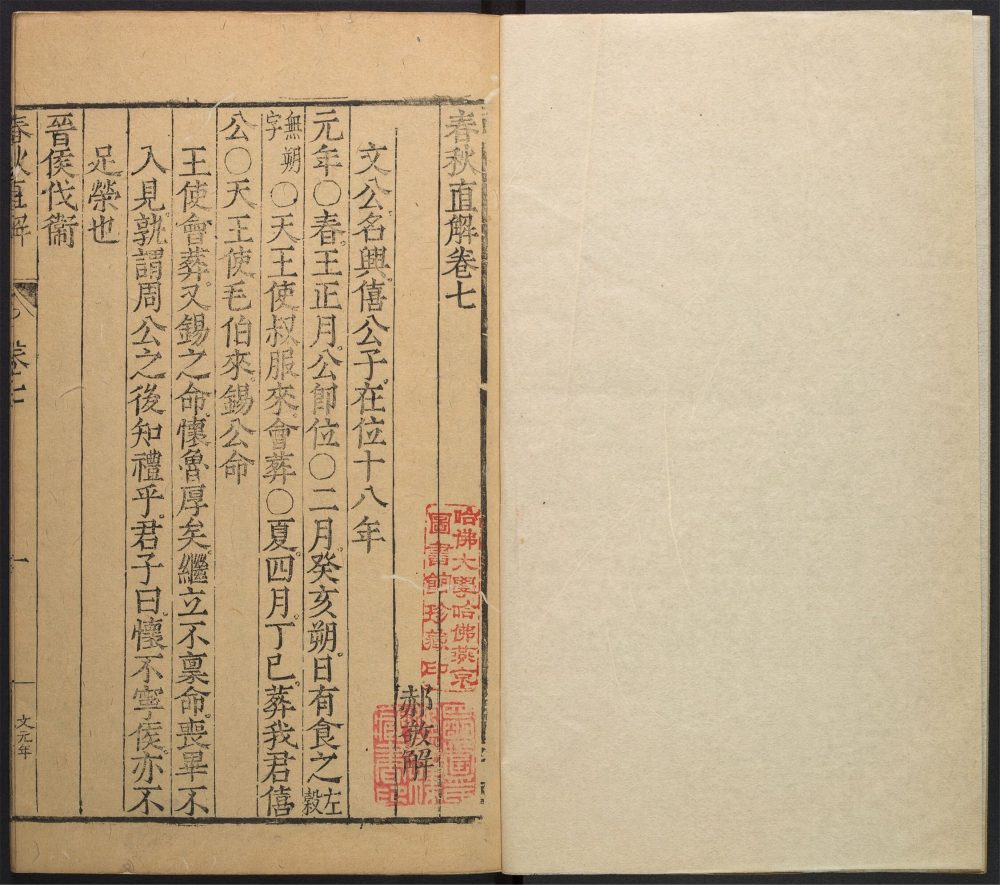 春秋直解卷七
郝敬解
哈佛大學哈佛燕京
圖書館珍藏印
文公名興僖公子在位十八年
元年〇春王正月公卽位〇二月癸亥朔日有食之左穀
無朔字〇天王使叔服來會葬〇夏四月丁巳葬我君僖
公〇天王使毛伯來錫公命
王使會葬又錫之命懷魯厚矣繼立不稟命喪畢不
入見孰謂周公之後知禮乎君子曰懷不寧侯亦不
足榮也
晉侯伐衞
春秋直解
卷七
一
文元年